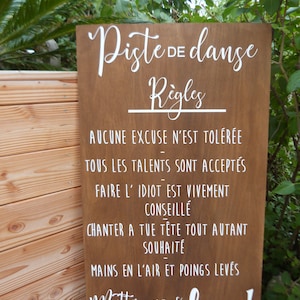 Piste DE danse
Règles
AUCUNE EXCUSE N'EST TOLÉRÉE
-
TOUS LES TALENTS SONT ACCEPTÉS
-
FAIRE L' IDIOT EST VIVEMENT
CONSEILLÉ
-
CHANTER A TUE TÊTE TOUT AUTANT
SOUHAITÉ
-
MAINS EN L'AIR ET POINGS LEVÉS